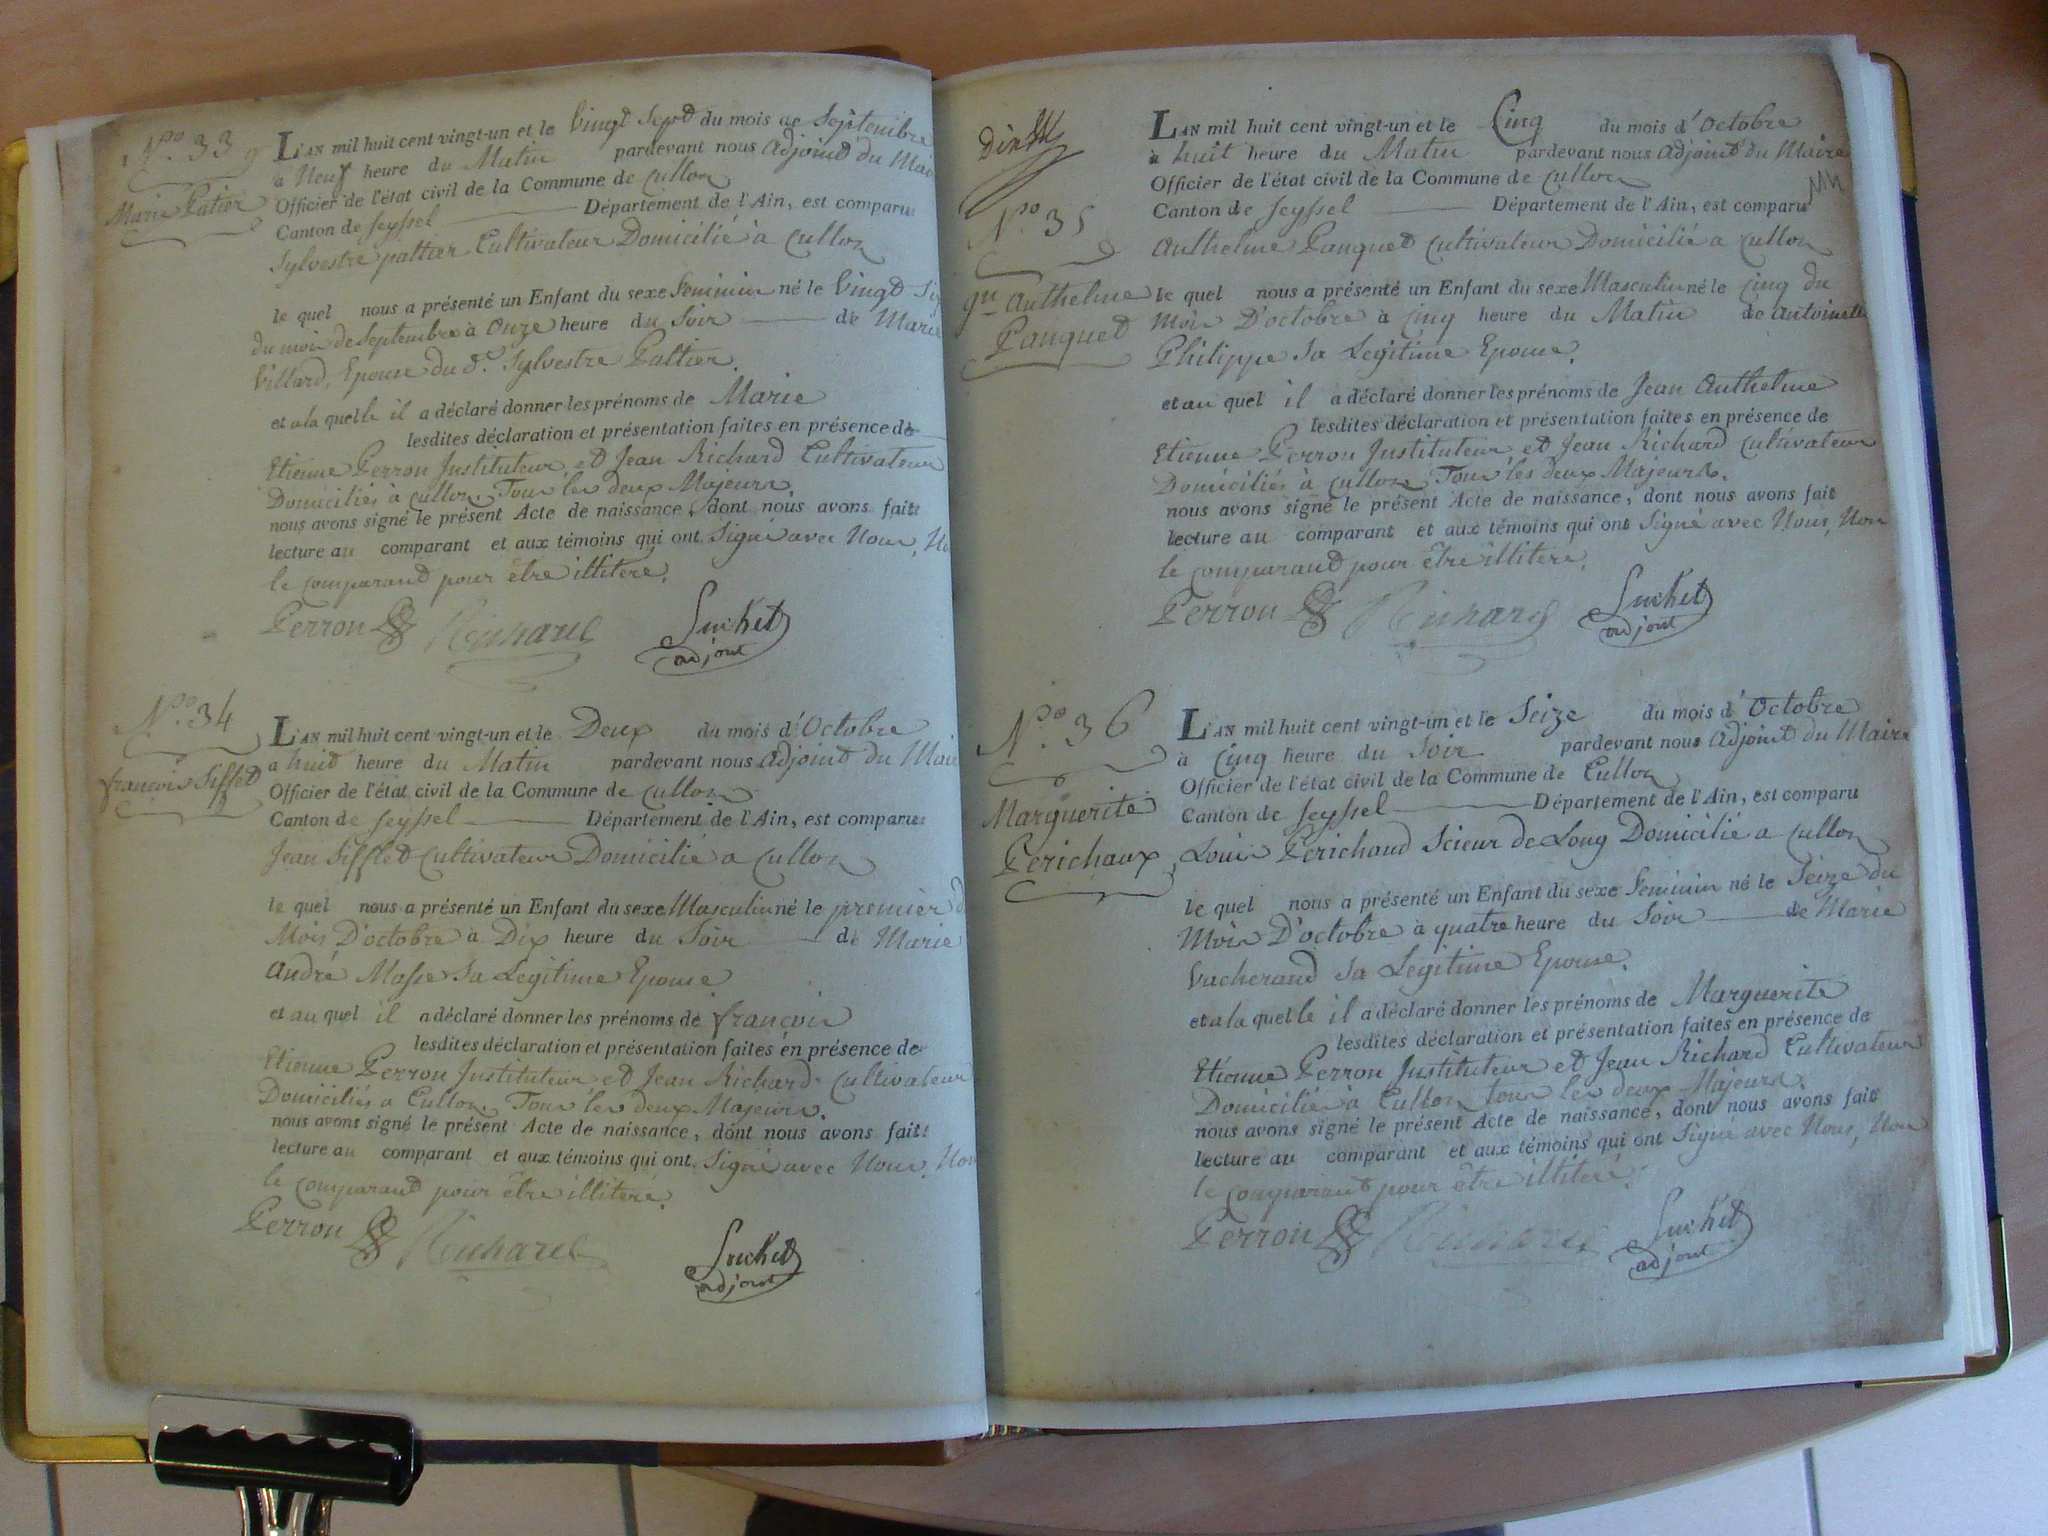 N.o 33
Marie Patier
L'AN mil huit cent vingt-un et le Vingt Sept du mois de Septembre
à Neuf heure du Matin pardevant nous Adjoint du Mair
Officier de l'état civil de la Commune de Culloz
Canton de Seyssel Département de l'Ain, est comparu
Sylvestre pattier Cultivateur Domicilié à Culloz
le quel nous a présenté un Enfant du sexe feminin né le Vingt Six
du mois de Septembre à Onze heure du Soir de Marie
Villard, Epouse du d.t Sylvestre Pattier.
et a la quelle il a déclaré donner les prénoms de Marie
lesdites déclaration et présentation faites en présence de
Etienne Perron Instituteur et Jean Richard Cultivateur
Domiciliés à Culloz. Tous les deux Majeurs.
nous avons signé le présent Acte de naissance, dont nous avons fait
lecture au comparant et aux témoins qui ont Signé avec Nous, No
le comparant pour être illitere.
Perron Richard Suchet
adjoint
N.o 34
françois Sifflet
L'AN mil huit cent vingt-un et le Deux du mois d'Octobre
à huit heure du Matin pardevant nous Adjoint du Mair
Officier de l'état civil de la Commune de Culloz
Canton de Seyssel Département de l'Ain, est comparu
Jean Sifflet Cultivateur Domicilié a Culloz
le quel nous a présenté un Enfant du sexe Masculin né le premier d
Mois D'octobre à Dix heure du Soir de Marie
André Masse Sa Legitime Epouse
et au quel il a déclaré donner les prénoms de françois
lesdites déclaration et présentation faites en présence de
Etienne Perron Instituteur et Jean Richard Cultivateur
Domiciliés a Culloz. Tous les deux Majeurs.
nous avons signé le présent Acte de naissance, dont nous avons fait
lecture au comparant et aux témoins qui ont Signé avec Nous, Non
le comparant pour être illiteré.
Perron Richard Suchet
adjoint
N.o 35
Anthelme
Panquet
L'AN mil huit cent vingt-un et le Cinq du mois d'Octobre
à huit heure du Matin pardevant nous Adjoint du Maire
Officier de l'état civil de la Commune de Culloz
Canton de Seyssel Département de l'Ain, est comparu
Anthelme Panquet Cultivateur Domicilié a Culloz
le quel nous a présenté un Enfant du sexe Masculin né le Cinq du
Mois D'octobre à Cinq heure du Matin de Antoinette
Philippe Sa Legitime Epouse.
et au quel il a déclaré donner les prénoms de Jean Anthelme
lesdites déclaration et présentation faites en présence de
Etienne Perron Instituteur et Jean Richard Cultivateur
Domiciliés à Culloz Tous les deux Majeurs.
nous avons signé le présent Acte de naissance, dont nous avons fait
lecture au comparant et aux témoins qui ont Signé avec Nous, Non
le comparant pour être illitere.
Perron Richard Suchet
adjoint
N.o 36
Marguerite
Perichaux
L'AN mil huit cent vingt-un et le Seize du mois d'Octobre
à Cinq heure du Soir pardevant nous Adjoint du Maire
Officier de l'état civil de la Commune de Culloz
Canton de Seyssel Département de l'Ain, est comparu
Louis Perichaud Scieur de Long Domicilié a Culloz
le quel nous a présenté un Enfant du sexe feminin né le Seize du
Mois D'octobre à quatre heure du Soir de Marie
Vacherand Sa Legitime Epouse.
et a la quelle il a déclaré donner les prénoms de Marguerite
lesdites déclaration et présentation faites en présence de
Etienne Perron Instituteur et Jean Richard Cultivateur
Domiciliés à Culloz tous les deux Majeurs.
nous avons signé le présent Acte de naissance, dont nous avons fait
lecture au comparant et aux témoins qui ont Signé avec Nous, Non
le comparant pour être illiteré.
Perron Richard Suchet
adjoint